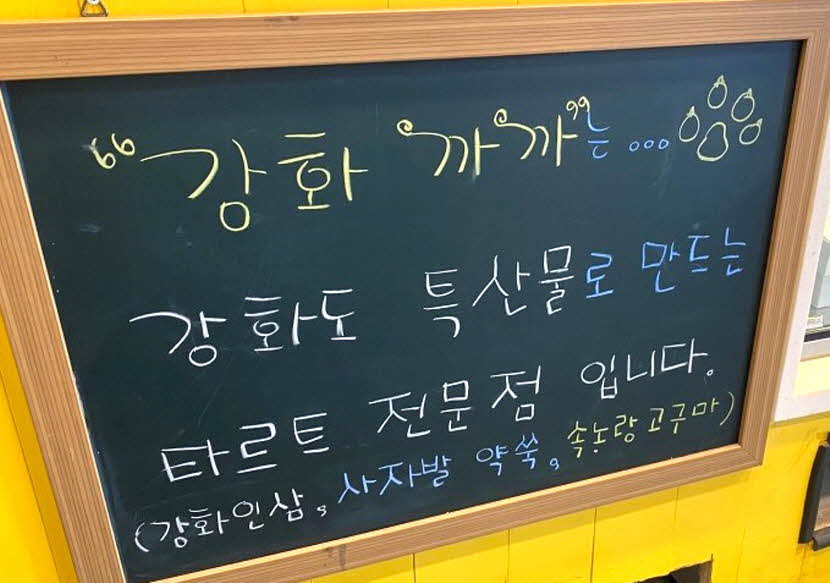 "강화 까까"는 ...
강화도 특산물로 만드는
타르트 전문점 입니다.
(강화인삼, 사자발 약쑥, 속노랑고구마)